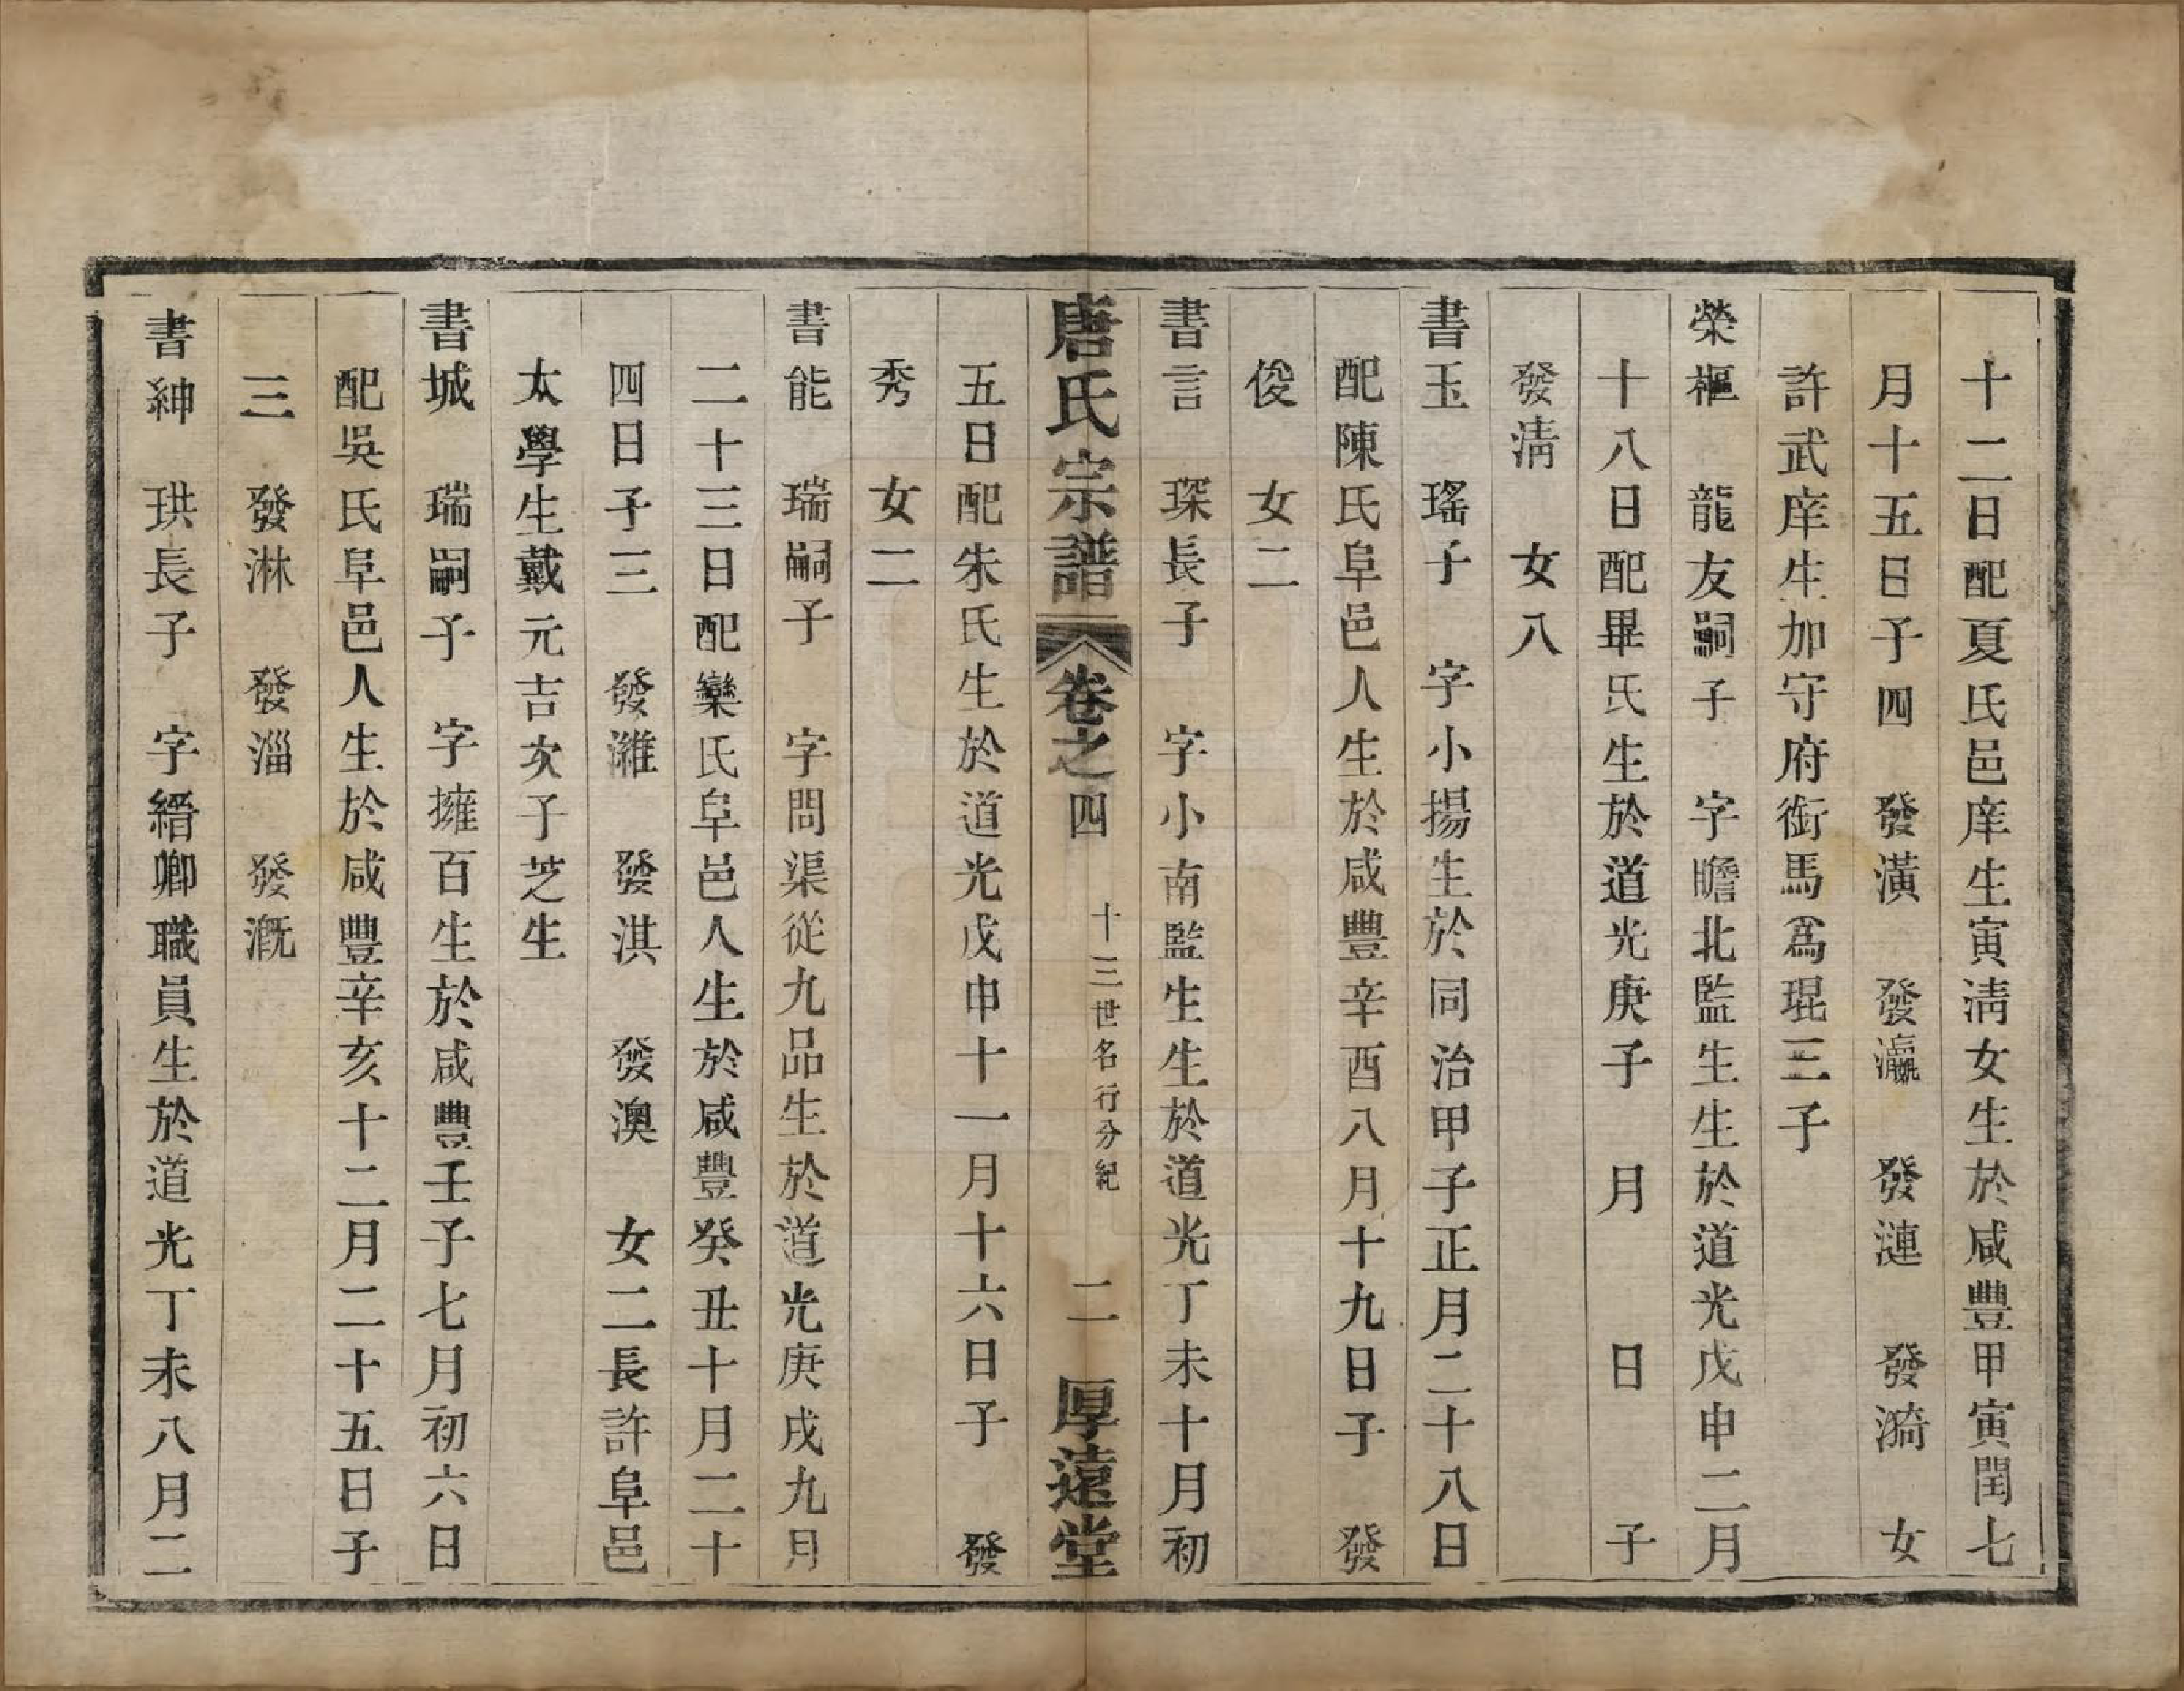 十二日配夏氏邑庠生寅淸女生於咸豐甲寅閏七
月十五日子四　發潢　發瀛　發漣　發漪　女
許武庠生加守府銜馬爲琨三子
榮樞　龍友嗣子　字瞻北監生生於道光戊申二月
十八日配畢氏生於道光庚子　月　日　子
發淸　女八
書玉　瑤子　字小揚生於同治甲子正月二十八日
配陳氏阜邑人生於咸豐辛酉八月十九日子　發
俊　女二
書言　琛長子　字小南監生生於道光丁未十月初
唐氏宗譜　卷之四　十三世名行分紀　二　厚遠堂
五日配朱氏生於道光戊申十一月十六日子　發
秀　女二
書能　瑞嗣子　字問渠從九品生於道光庚戌九月
二十三日配欒氏阜邑人生於咸豐癸丑十月二十
四日子三　發濰　發淇　發澳　女二長許阜邑
太學生戴元吉次子芝生
書城　瑞嗣子　字擁百生於咸豐壬子七月初六日
配吳氏阜邑人生於咸豐辛亥十二月二十五日子
三　發淋　發淄　發漑
書紳　珙長子　字縉卿職員生於道光丁未八月二